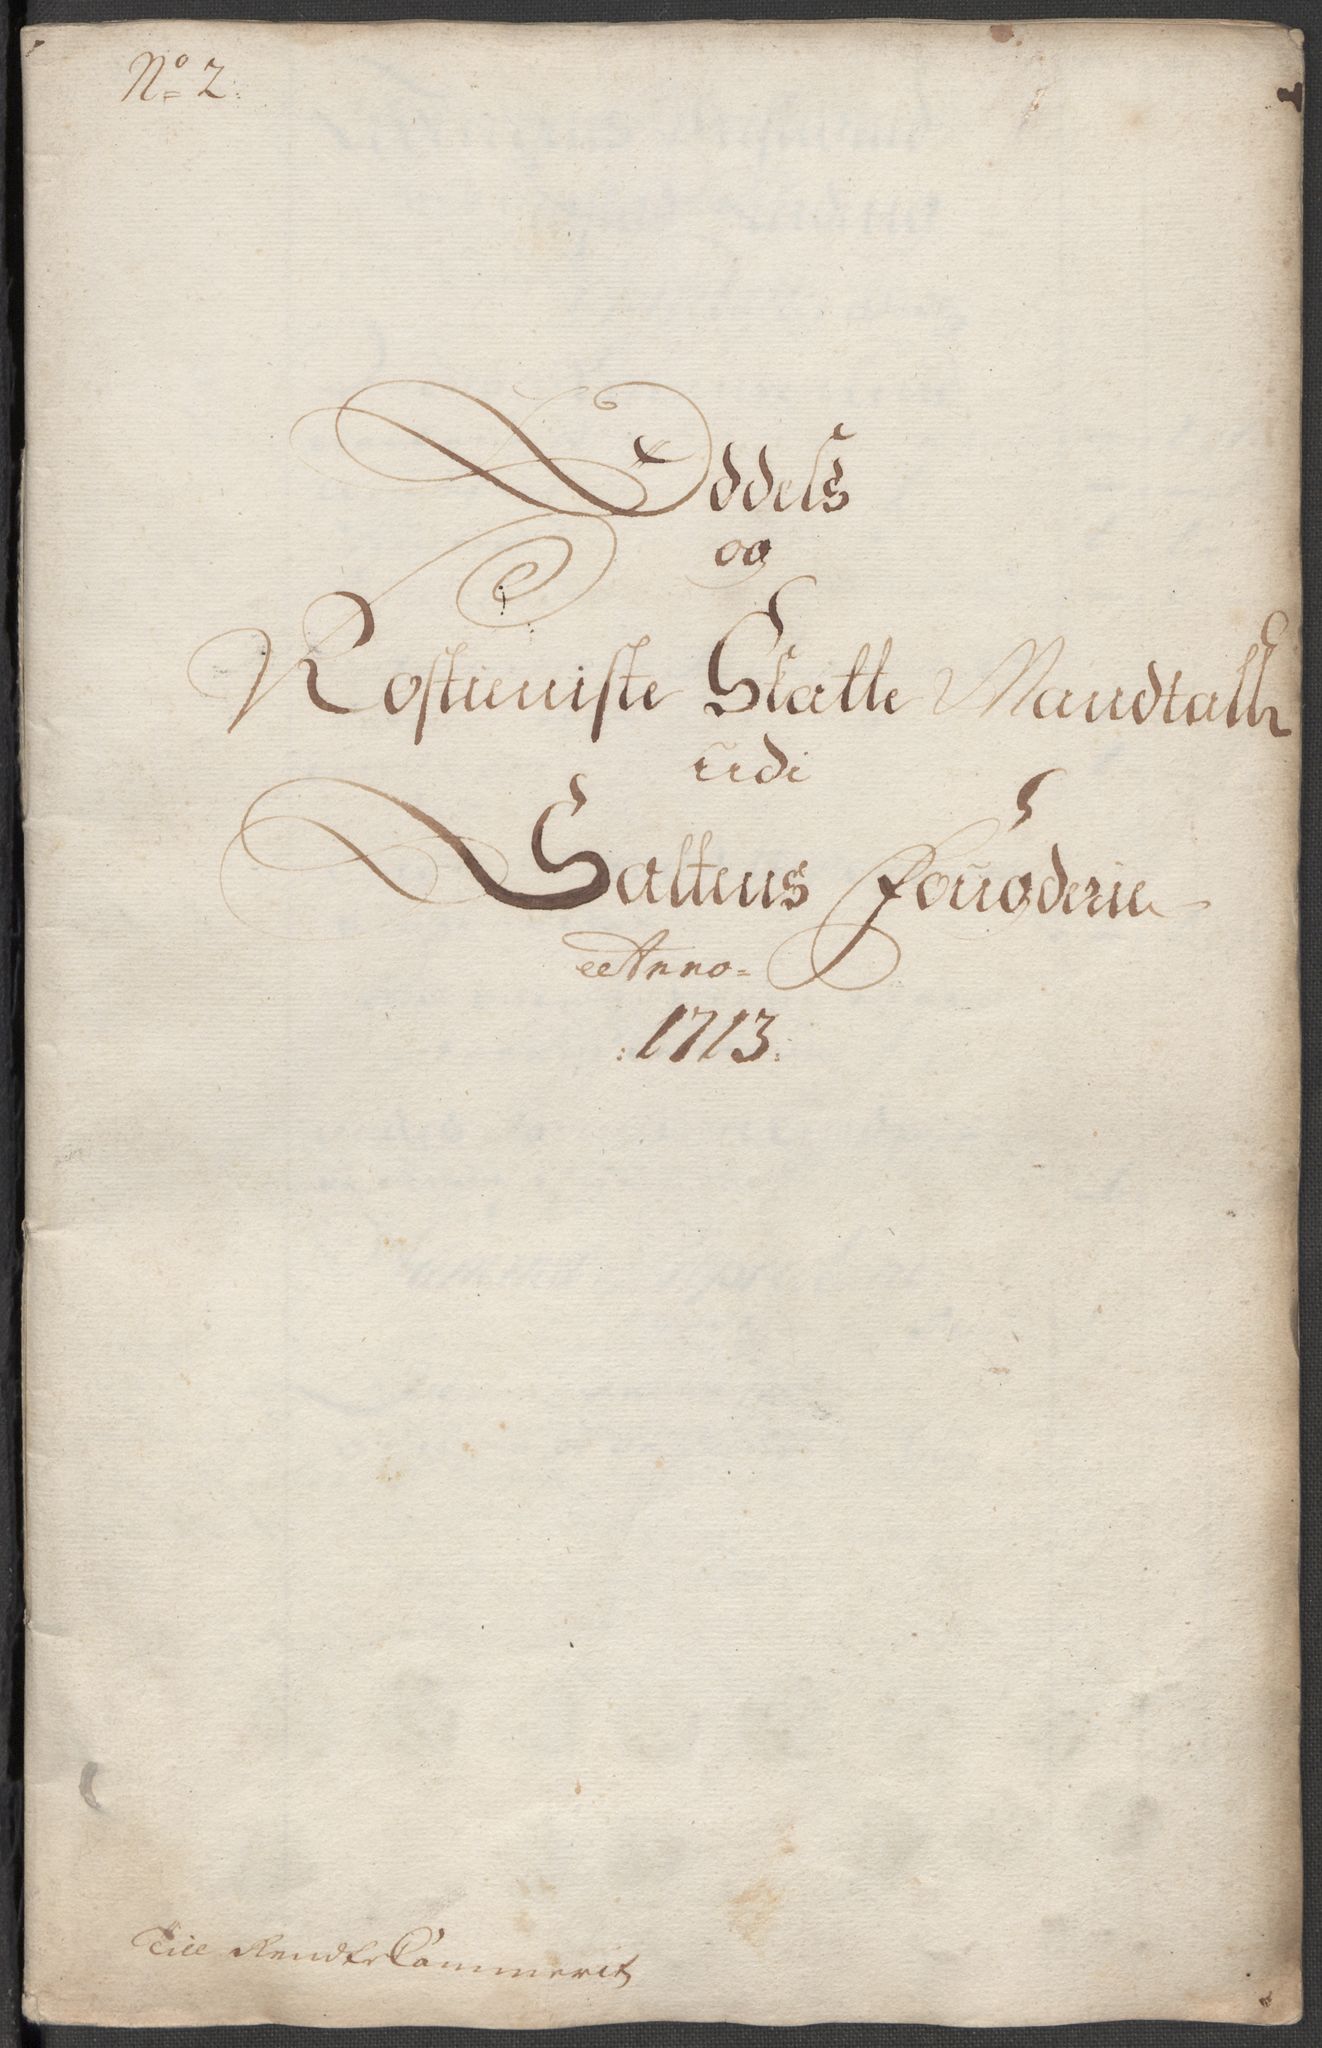 No 2.
Oddels
og
Rostieniste Skatte Mandtall
udi
Saltens Fougderie
Anno
1713.
Till RendteCammerit